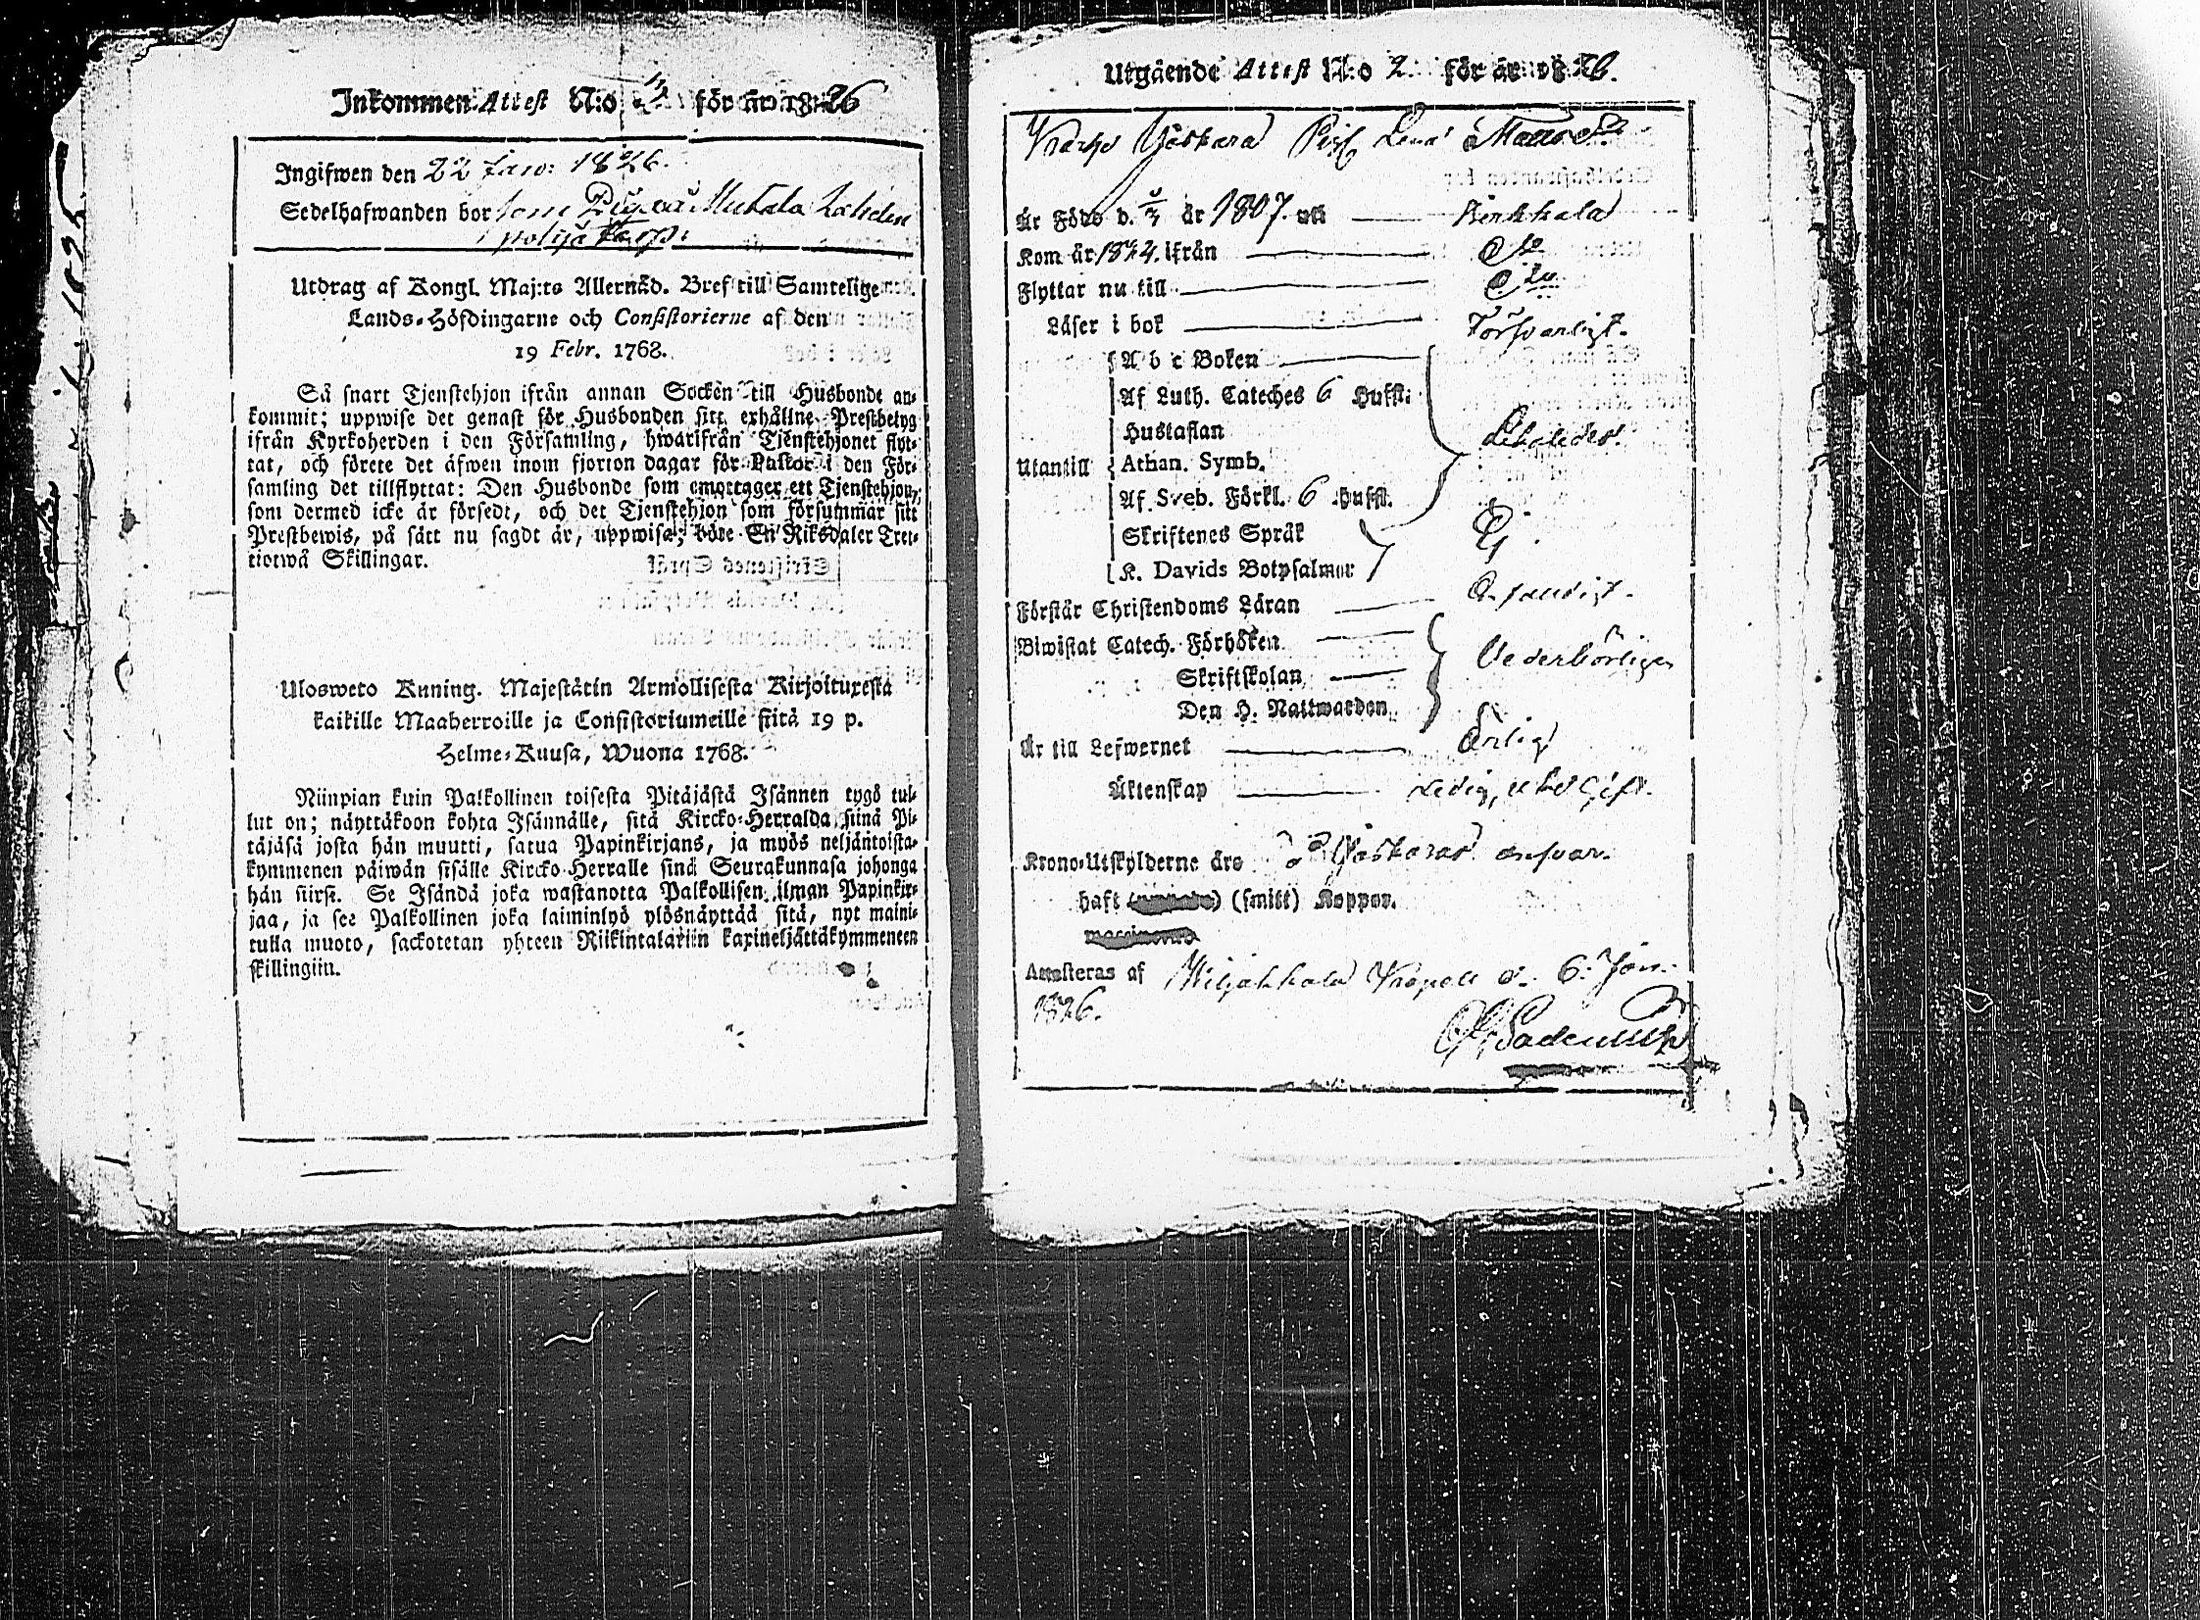 Inkommen Attest N:o för år 1826
Ingifwen den 22 Janu: 1826.
Sedelhafwanden bor som Piga å
Utdrag af Kongl. Maj:ts Allernåd. Bref till Samtelige
Lands-Höfdingarne och Consistorierne af den
19 Febr. 1768.
Så snart Tjenstehjon ifrån annan Socken till Husbonde an-
kommit; uppwise det genast för Husbonden sitt erhållne Prestbetyg
ifrån Kyrkoherden i den Församling, hwarifrån Tjenstehjonet flyt-
tat, och förete det äfwen inom fjorton dagar för Pastor i den För-
samling det tillflyttat: Den Husbonde som emottager ett Tjenstehjon,
som dermed icke är försedt, och det Tjenstehjon som försummar sitt
Prestbewis, på sätt nu sagdt är, uppwisa; böte En Riksdaler Tret-
tiotwå Skillingar.
Ulosweto Kuning. Majestätin Armollisesta Kirjoituxesta
kaikille Maaherroille ja Consistoriumeille siitä 19 p.
Helme-Kuusa, Wuona 1768.
Niinpian kuin Palkollinen toisesta Pitäjästä Isännen tygö tul-
lut on; näyttäkoon kohta Isännälle, sitä Kircko-Herralda siinä Pi-
täjäsä josta hän muutti, saatua Papinkirjans, ja myös neljäntoista-
kymmenen päiwän sisälle Kircko-Herralle sinä Seurakunnasa johonga
hän siirsi. Se Isändä joka wastanotta Palkollisen ilman Papinkir-
jaa, ja see Palkollinen joka laiminlyö ylösnäyttää sitä, nyt maini-
tulla muoto, sackotetan yhteen Riikintalariin kaxineljättäkymmeneen
skillingiin.
Utgående Attest N:o 2. för år 1826.
Lena
År Född d. år 1807. uti Birkkala
Kom år 1824. ifrån Do
Flyttar nu till Do
Läser i bok Försvarligt.
A b c Boken
Af Luth. Cateches 6 Hufst:
Hustaflan
Utantill Athan. Symb.
Af Sveb. Förkl. 6 Hufst.
Skriftenes Språk Ej
K. Davids Botpsalmer
Förstår Christendoms Läran
Biwistat Catech. Förhören Vederbörligen
Skriftskolan
Den H. Nattwarden
Är till Lefwernet Ärlig
Äktenskap Ledig,
Krono-Utskylderne äro ansvar.
haft (smitt) Koppor.
Attesteras af Kapell d. 6. Jan.
1826.